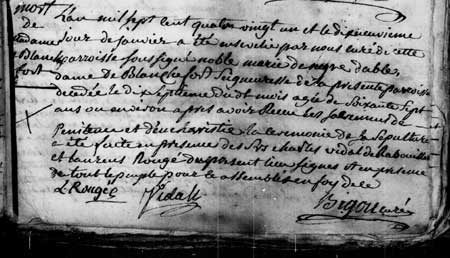 mort
de
dame
Blanche
fort
L'an mil sept cent quatre vingt un et le dixneuvieme
jour de janvier a été ensevelie par nous curé de cette
parroisse sousigné noble marie de negre d'ables
dame De Blanchefort seigneuresse de la presente parroisse
decedée le dixseptieme dudt mois agée de soixante sept
ans ou environ apres avoir Reçeu les sacremens de
penitence et d'eucharistie la ceremonie de la sepulture
a été faite en presence des Srs charles vidal de Rabouillet
et laurens Rougé signes et en presence
de tout le peuple pour ce assemblés en foy de ce
L Rougé Vidal
Bigou curé